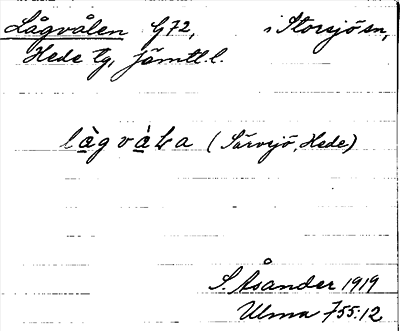 Lågvålen G72, i Storsjö sn,
Hede tg, Jämtl. l.
lågvåLa (Särvsjö, Hede)
S. Åsander 1919
Ulma 755:12